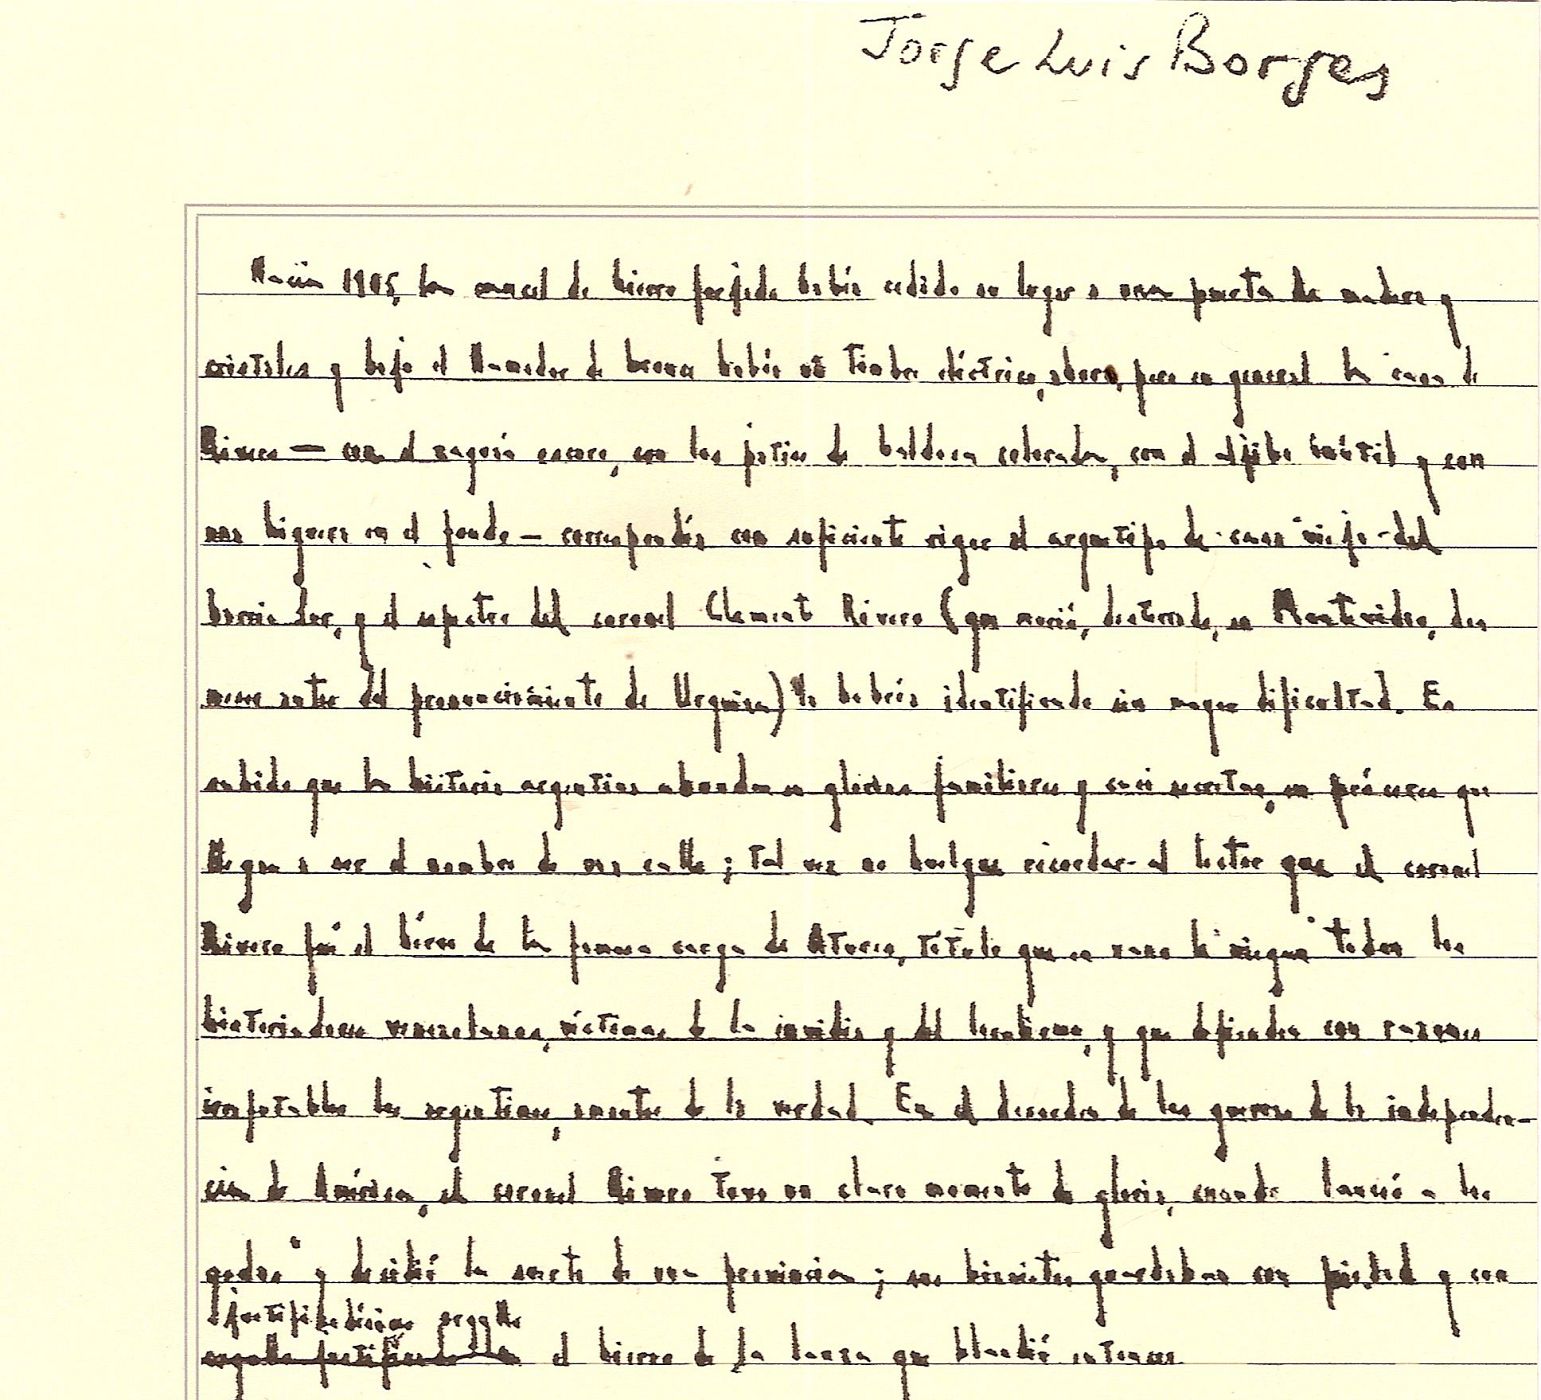 Jorge Luis Borges
Hacia 1905, la cancel de hierro forjado había cedido su lugar a una puerta de madera y
cristales y bajo el llamador de bronce había un timbre eléctrico, ahora, pero en general la casa de
Rivero — con el zaguán oscuro, con los patios de baldosa colorada, con el aljibe inútil y con
una higuera en el fondo — correspondía con suficiente rigor al arquetipo de casa vieja del
barrio Sur, y el espectro del coronel Clemente Rivero (que murió, desterrado, en Montevideo, dos
meses antes del pronunciamiento de Urquiza) la habría identificado sin mayor dificultad. Es
sabido que la historia argentina abunda en glorias familiares y casi secretas, en próceres que
llegan a ser el nombre de una calle; tal vez no huelgue recordar al lector que el coronel
Rivero fué el héroe de la famosa carga de , título que en vano le niegan todos los
historiadores venezolanos, víctimas de la envidia y del localismo, y que defienden con razones
irrefutables los argentinos, amantes de la verdad. En el desorden de las guerras de la independen-
cia de América, el coronel Rivero tuvo un claro momento de gloria, cuando lanceó a los
godos y decidió la suerte de una provincia; sus bisnietos guardaban con piedad y con
justificadísimo orgullo
el hierro de la lanza que blandió entonces.